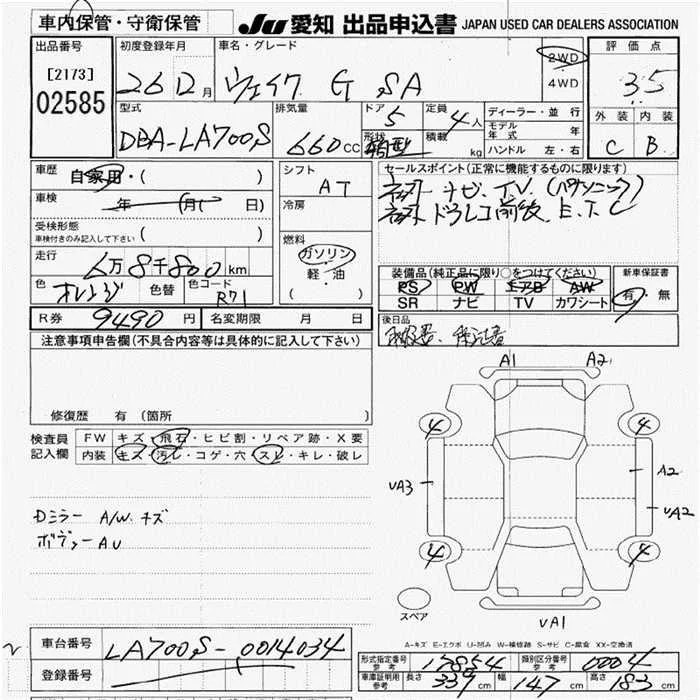 車内保管・守衛保管
JU 愛知 出品申込書 JAPAN USED CAR DEALERS ASSOCIATION
出品番号
[2173]
02585
初度登録年月
26 12月
車名・グレード
ウェイク G SA
2WD
4WD
評価点
3.5
外装 内装
C B
型式
DBA-LA700S
排気量
660cc
ドア
5
形状
箱型
定員
4人
積載
kg
ディーラー・並行
モデル年式 年
ハンドル 左・右
車歴
自家用・( )
車検
年 (月( 日)
受検形態
車検付きのみ記入して下さい ( )
走行
6万8千800km
色
オレンジ
色替
色コード
R71
シフト
AT
冷房
燃料
ガソリン
軽・油
( )
セールスポイント(正常に機能するものに限ります)
ナビ、T.V.(パナソニック)
ドラレコ前後、E.T.C
装備品(純正品に限り○をつけてください)
PS PW エアB AW
SR ナビ TV カワシート
新車保証書
有・無
後日品
R券 9490円
名変期限 月 日
注意事項申告欄(不具合内容等は具体的に記入して下さい)
修復歴 有(箇所 )
検査員
記入欄
FW キズ・飛石・ヒビ割・リペア跡・X要
内装 キズ・汚レ・コゲ・穴・スレ・キレ・破レ
Dミラー A/W キズ
ボディー AU
A1 A2
4 4
UA3
A2
UA2
4 4
スペア
UA1
A-キズ E-エクボ U-凹み W-補修跡 S-サビ C-腐食 XX-交換済
車台番号
LA700S-0014034
登録番号
型式指定番号 参考
17854
類別区分番号 参考
0004
車庫証明用 参考
長さ 339cm 幅 147cm 高さ 183cm